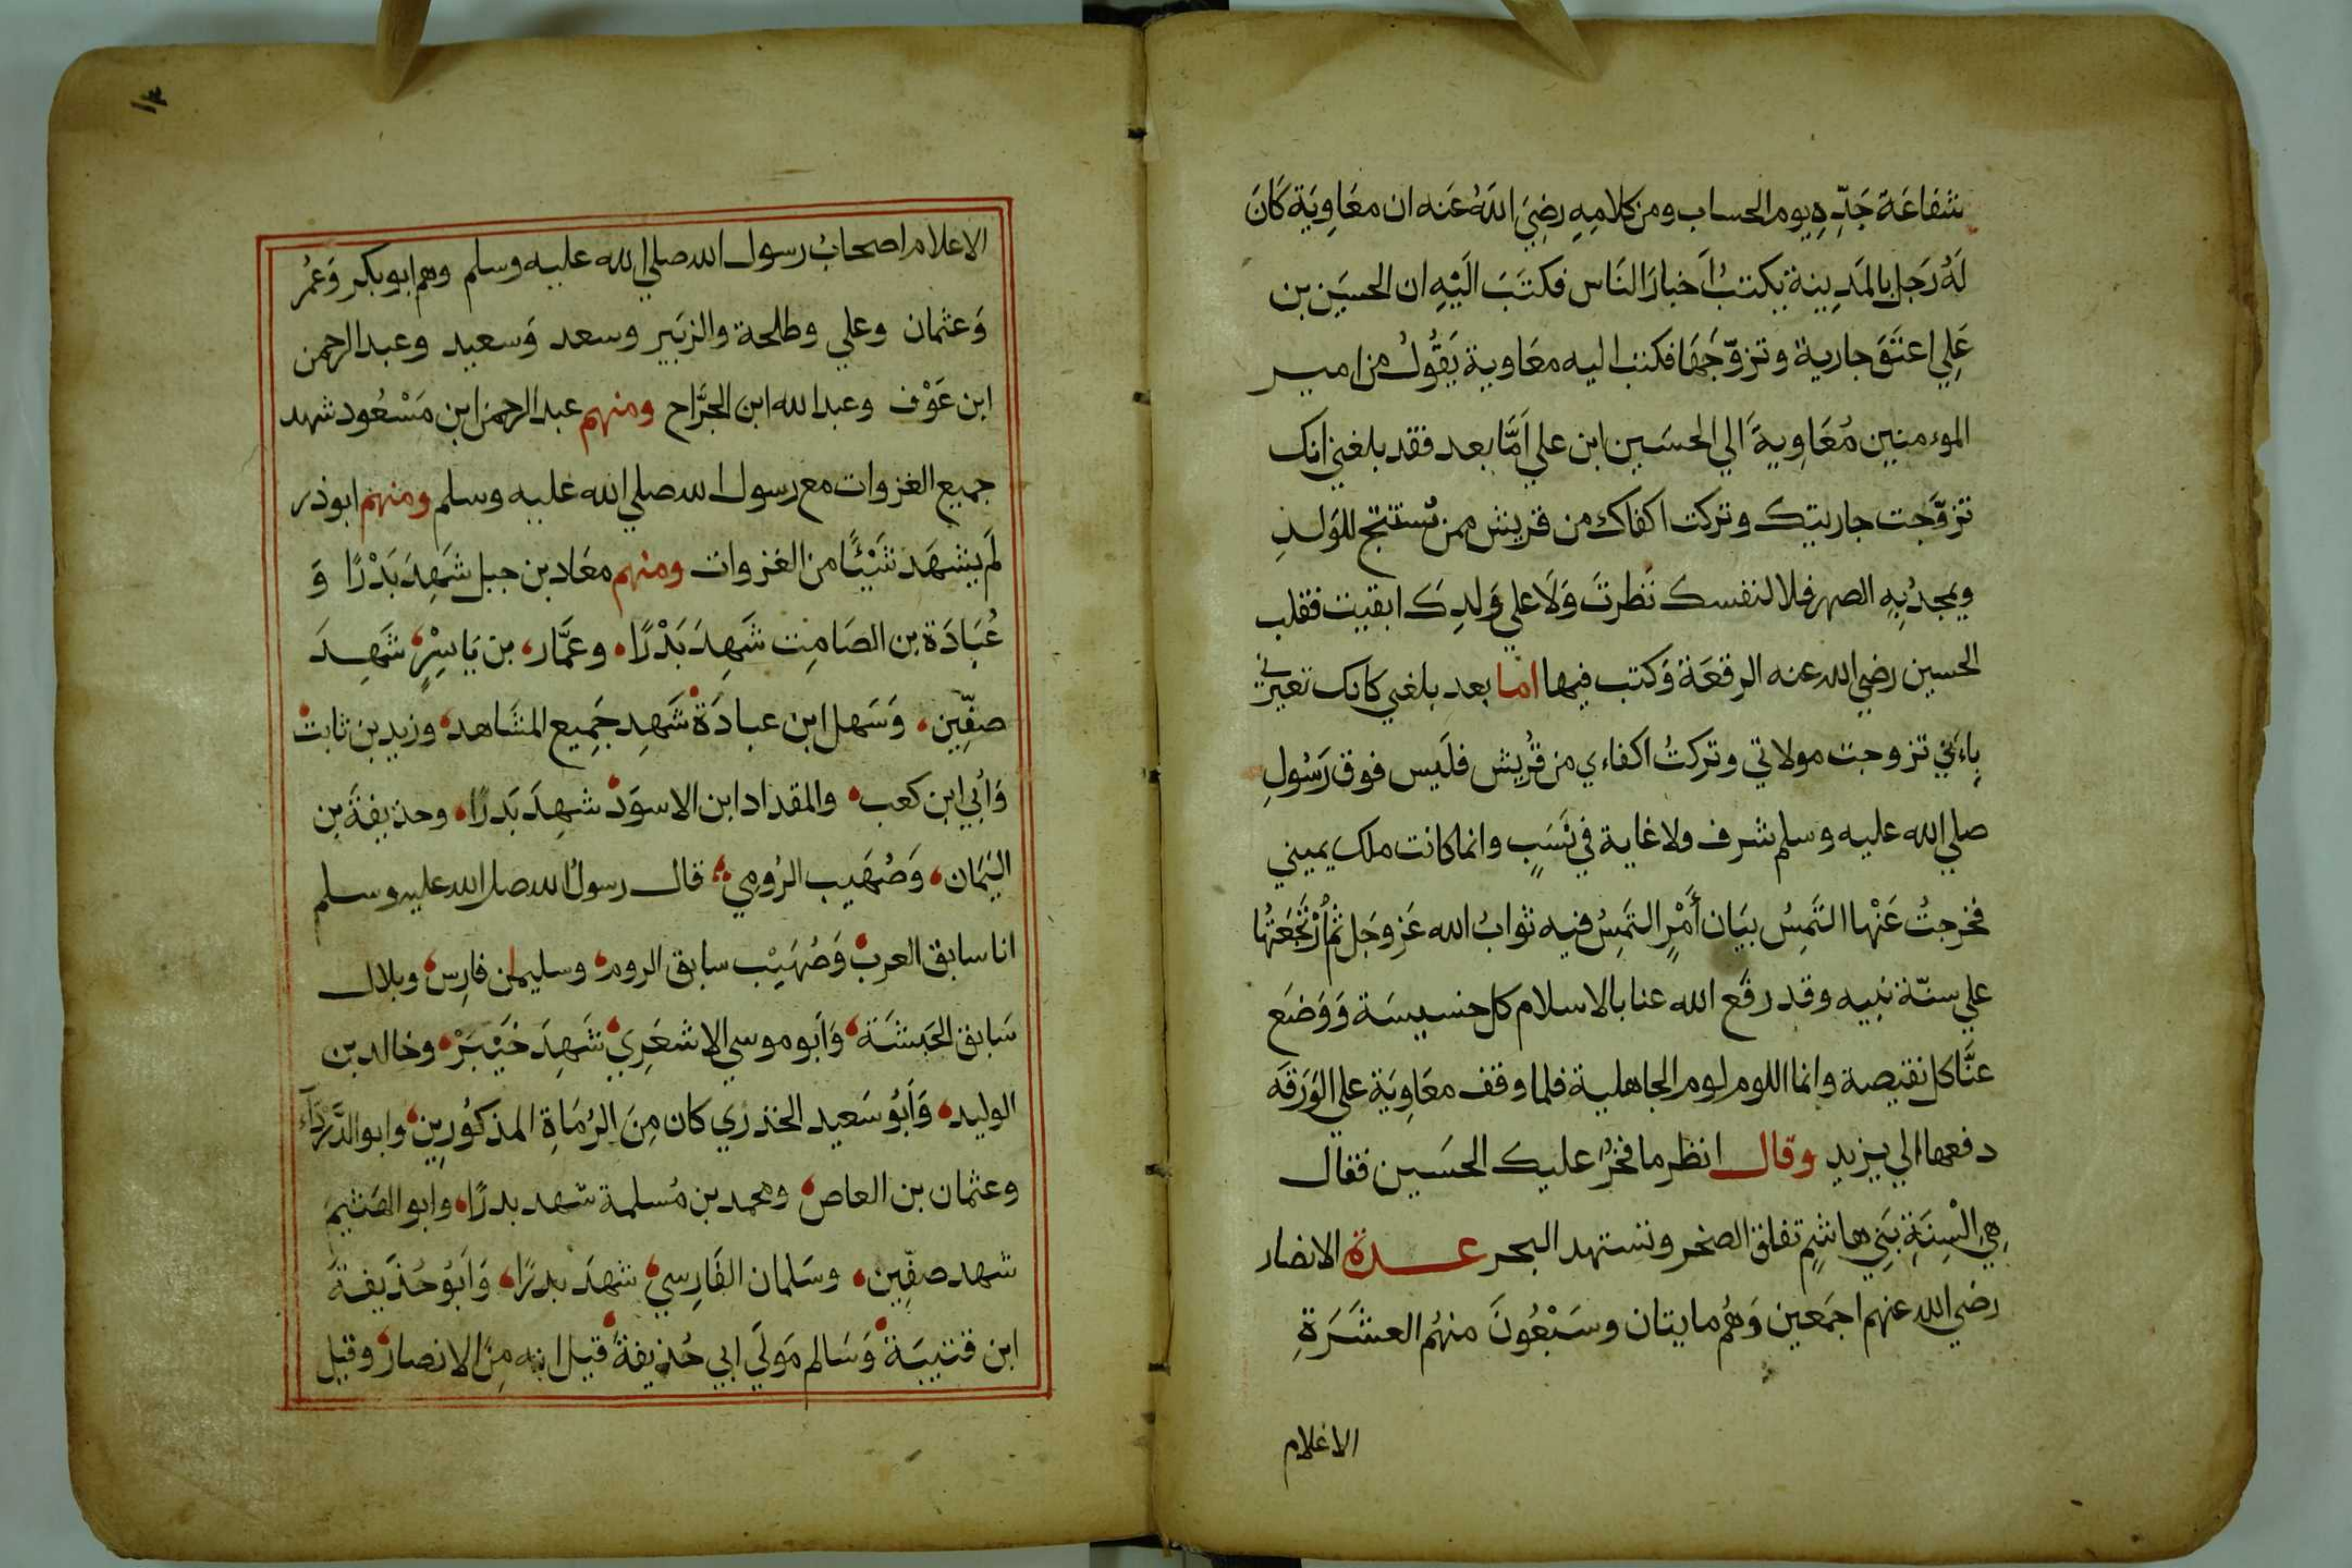 شفاعَة جَدِّهِ يوم الحساب ومن كلامِهِ رضِيَ اللهُ عَنه ان معَاوِيَة كَانَ
لَهُ رَجل بالمَدِينة يكتبُ اَخبارَ النَاس فكتَبَ اليْهِ ان الحسَين بن
عَلِي اعتَقَ جارية وتزوّجَهَا فكتب اليه معَاوية يَقُولُ من امير
الموءمنين مُعَاوِيةَ الي الحسَين ابن علي اَمَّا بعد فقد بلغني انك
تزوَّجت جاريتِك وتركت اكفاك من قريش ممن تُستنتج للوَلدِ
ويمجدُ بِهِ الصهر فلا لنفسك نَظرتَ وَلَا علي وَلدِكَ ابقيت فقلب
الحسين رضي الله عنه الرقعَةَ وَكتب فيها اما بعد بلغني كانك تعيرني
باءني تزوجت مولاتي وتركتُ اكفاءي من قُريش فلَيس فوق رَسُولِ
صلي الله عليه وسلم شرف ولا غاية في نَسَبٍ وانما كانت ملك يميني
فخرجتُ عَنْها التَمِسُ بيَان أَمْرٍ التَمِسُ فيه ثوابُ الله عَز وجَل ثم اُرْتَجَعَتُها
علي سنّة نبيه وقد رفَع الله عنا بالاسلام كل خسيسَة وَوَضَع
عنَّا كل نقيصة وانما اللوم لوم الجاهلية فلما وقف معَاوِيَة علي الوَرَقَه
دفعها الي يزيد وقال انظر ما فخرُ عليك الحسَين فقال
هِيِ الْسِنَةِ بَنِي هاشمٍ تفلق الصخر وتستهد البحر عدة الانصار
رضي الله عنهم اجمَعين وَهُم مايتان وسَبْعُونَ منهُم العشَرَةِ
الاعلام
١٣
الاعلام اصحابُ رسول الله صلي الله عليه وسلم وهم ابو بكر وَعُمُر
وَعثمان وعلي وطلحة والزبَير وسعد وَسعيد وعبد الرحمن
ابن عَوْف وعبد الله ابن الجرَّاح ومنهم عبد الرحمن ابن مَسْعُود شهد
جميع الغزوات مع رسول الله صلي الله عليه وسلم ومنهم ابوذر
لَم يشهَد شَيْئًا من الغزوات ومنهم معَاد بن جبل شَهِدَ بَدْرًا وَ
عُبَادَة بن الصَامِت شَهِدَ بَدْرًا وعمَّار بن يَاسِرٍ شَهِدَ
صفِّين وَسَهل ابن عبادَة شَهِد جَمِيع المشَاهد وزيد بن ثابت
وَاُبي ابن كعب والمقداد ابن الاسوَد شهِدَ بَدرًا وحذيفةَ بن
اليَمَان وَصُهَيب الرُومِي قال رسولُ الله صلي الله عليه وسلم
انا سابق العرب وَصُهَيْب سابق الروم وسليمن فارِس وبلال
سَابق الحَبشَة وَاَبو موسي الاشعَرِي شَهِدَ خَيْبَرْ وخالد بن
الوليد وَاَبُو سَعيد الخذري كان مِنَ الرُمَاةِ المذكوُرِين وابو الدَّرْدَآء
وعثمان بن العاص ومحمد بن مُسلمة شهد بدرًا وابو الهَشيمَ
شهد صفِّين وسَلمان الفَارِسي شهدَ بدرًا وَاَبوُ حُذَيفةَ
ابن قتيبَة وَسَالم مَولَي ابي حُذيفةَ قيل انه مِنَ الانصار وقيل